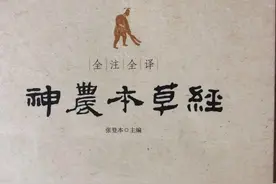 全注全译
神農本草經
张登本◎主编